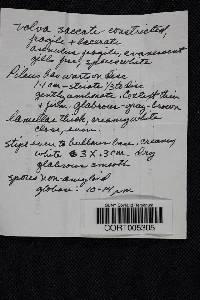 volva saccate - constricted,
fragile + lacerate
annulus fragile, evanescent
gills free, spores white
Pileus has warts on disc
1-1 cm - striate 1/3 to disc
gently umbonate. Context thin
+ firm. glabrous - gray-brown
lamellae thick, creamy white
close, even.
stipe even to bulbous base. creamy
white 8 x .3 cm. dry
glabrous smooth
spores non-amyloid
globose 10-14 µm
SUNY Cortland Herbarium
CORT005305